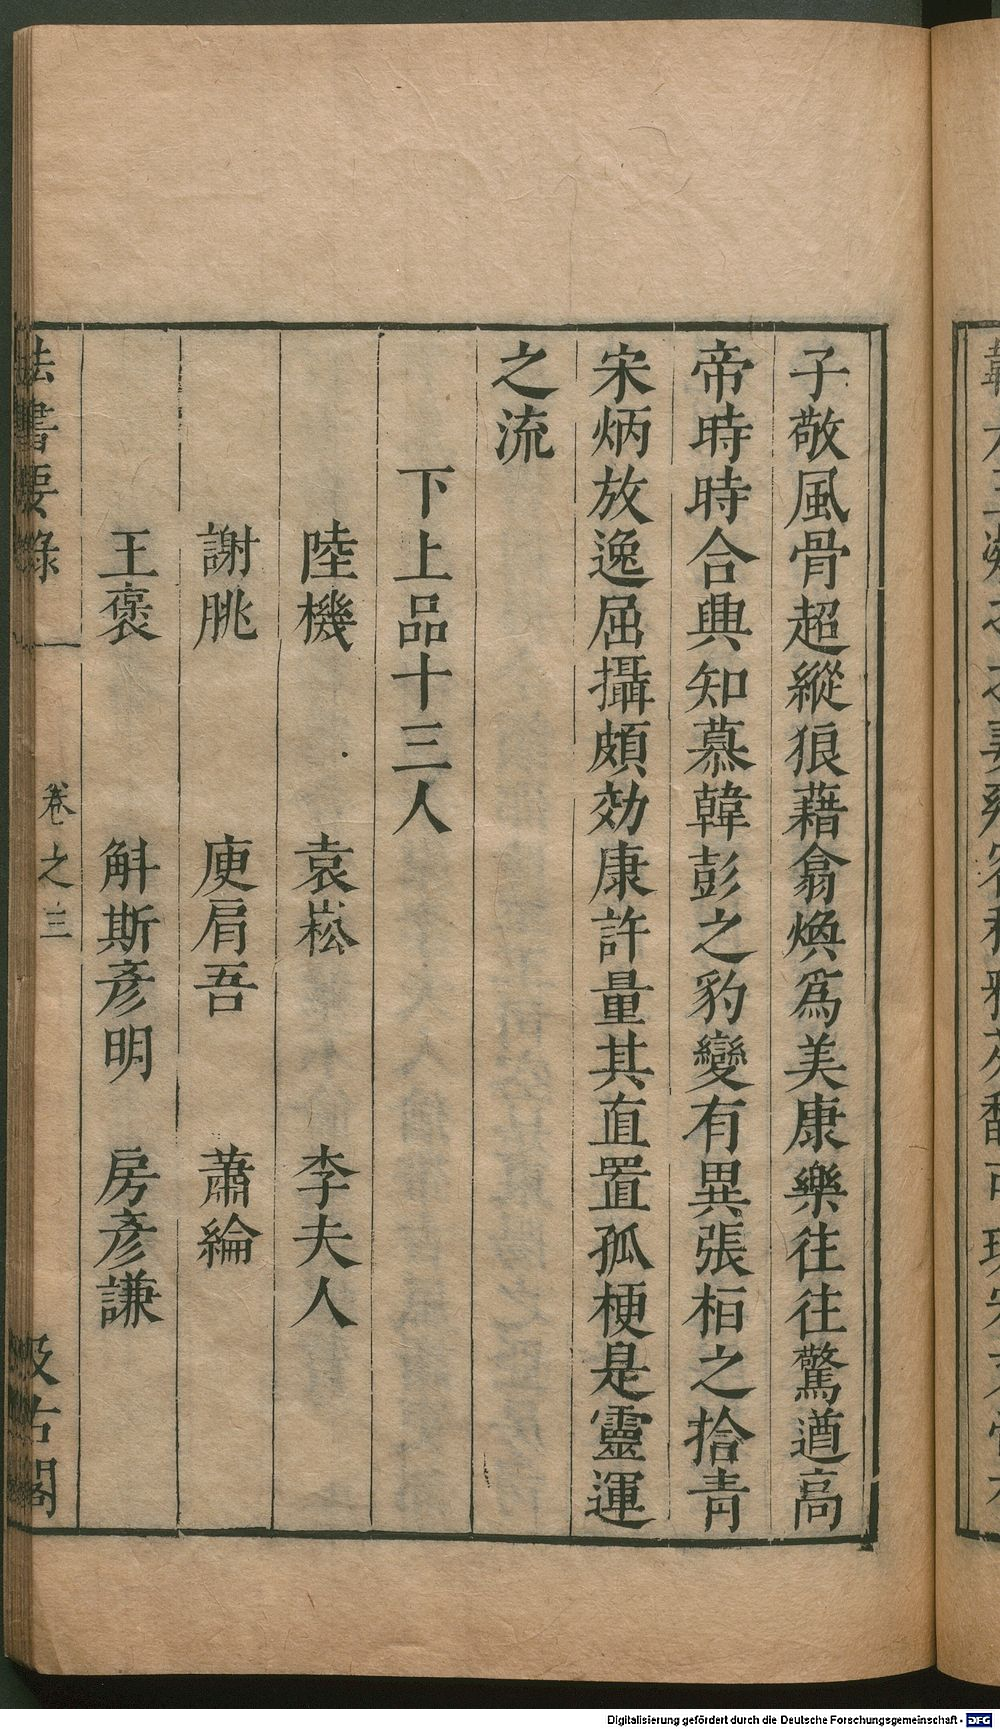 子敬風骨超縱狼藉翕煥爲美康樂往往驚遒高
帝時時合興知慕韓彭之豹變有異張桓之拾青
宋炳放逸屈攝頗効康許量其直置孤梗是靈運
之流
下上品十三人
陸機 袁崧 李夫人
謝朓 庾肩吾 蕭綸
王褒 斛斯彥明 房彥謙
法書要錄 卷之三 汲古閣
Digitalisierung gefördert durch die Deutsche Forschungsgemeinschaft - DFG